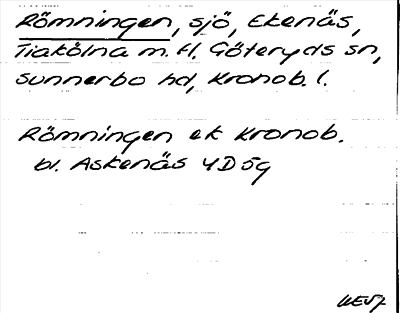 Römningen, sjö, Ekenäs,
Tiakölna m.fl. Göteryds sn,
Sunnerbo hd, Kronob. l.
Römningen ek Kronob.
bl. Askenäs 4D5g